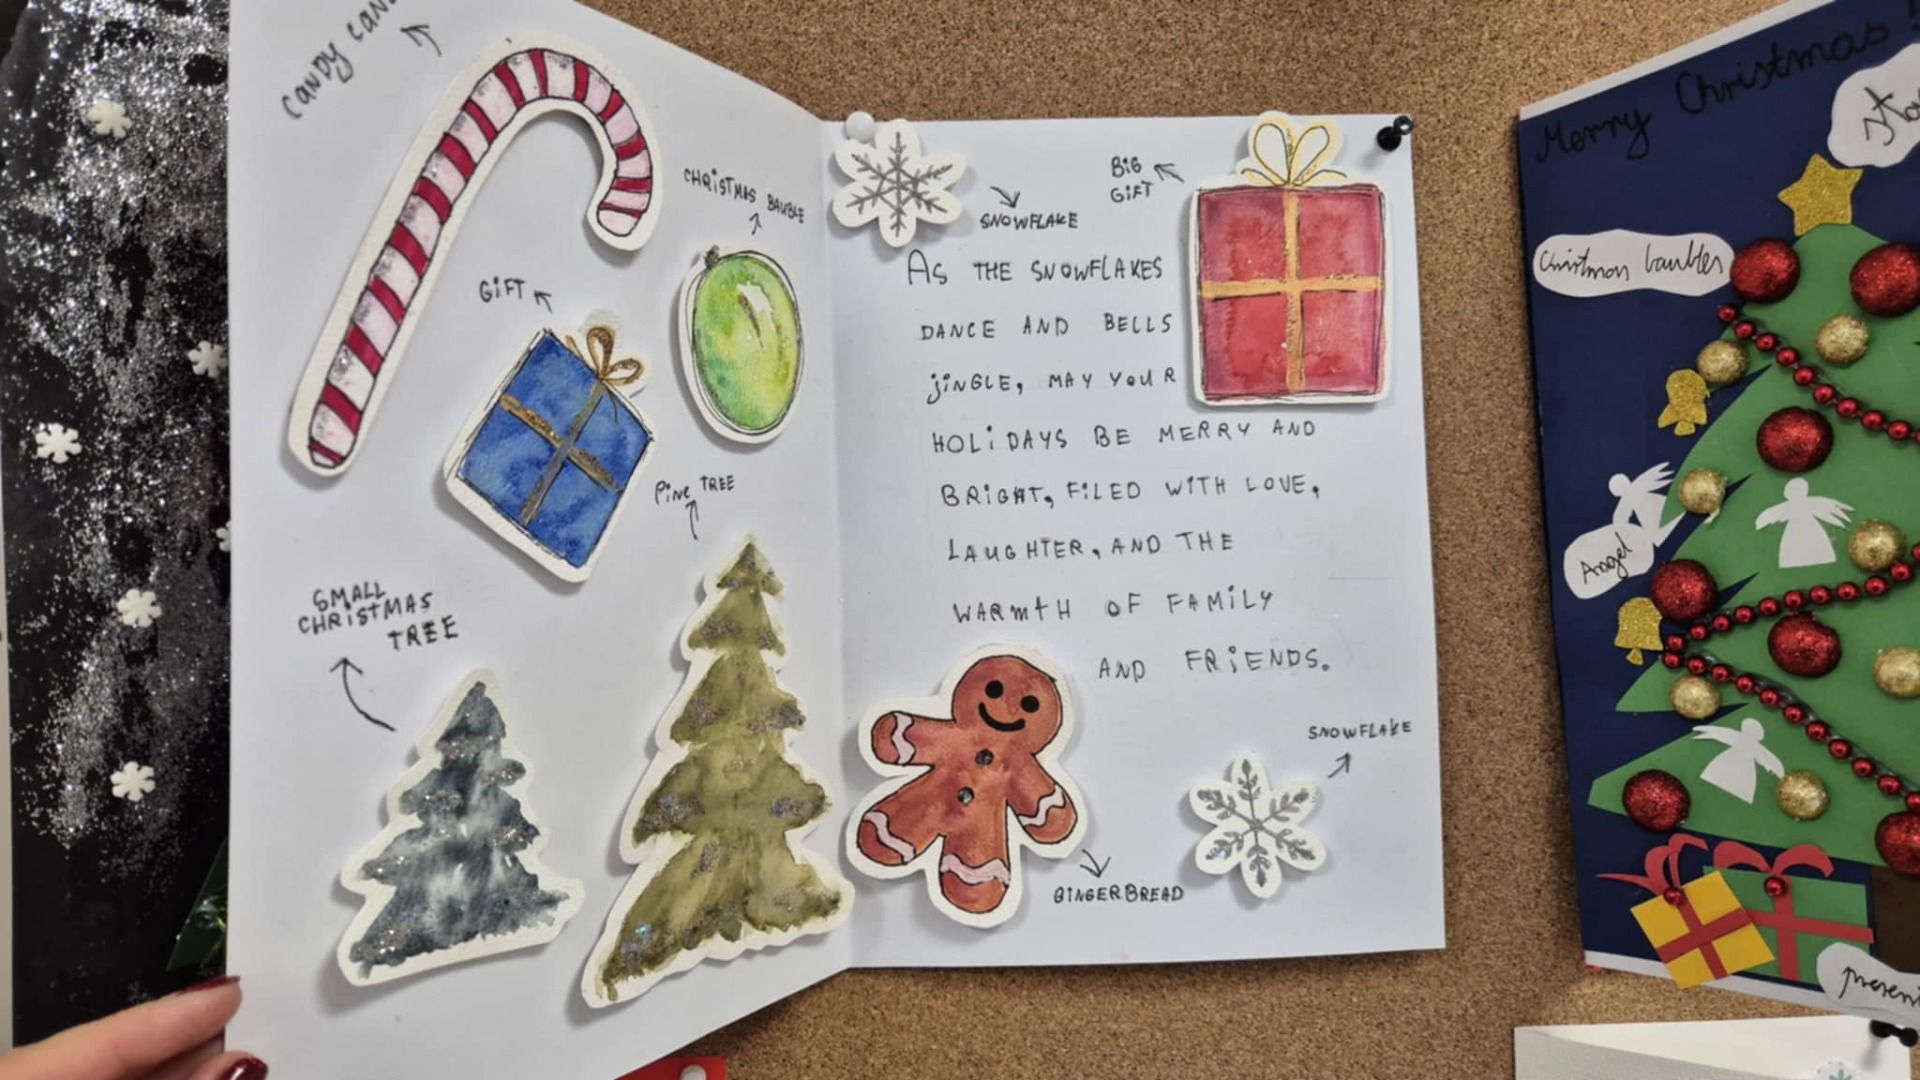 CANDY
CHRISTMAS BAUBLE
GIFT
PINE TREE
SMALL
CHRISTMAS
TREE
SNOWFLAKE
BIG
GIFT
AS THE SNOWFLAKES
DANCE AND BELLS
JINGLE, MAY YOUR
HOLIDAYS BE MERRY AND
BRIGHT, FILED WITH LOVE,
LAUGHTER, AND THE
WARMTH OF FAMILY
AND FRIENDS.
SNOWFLAKE
GINGERBREAD
Merry Christmas!
Christmas baubles
Angel